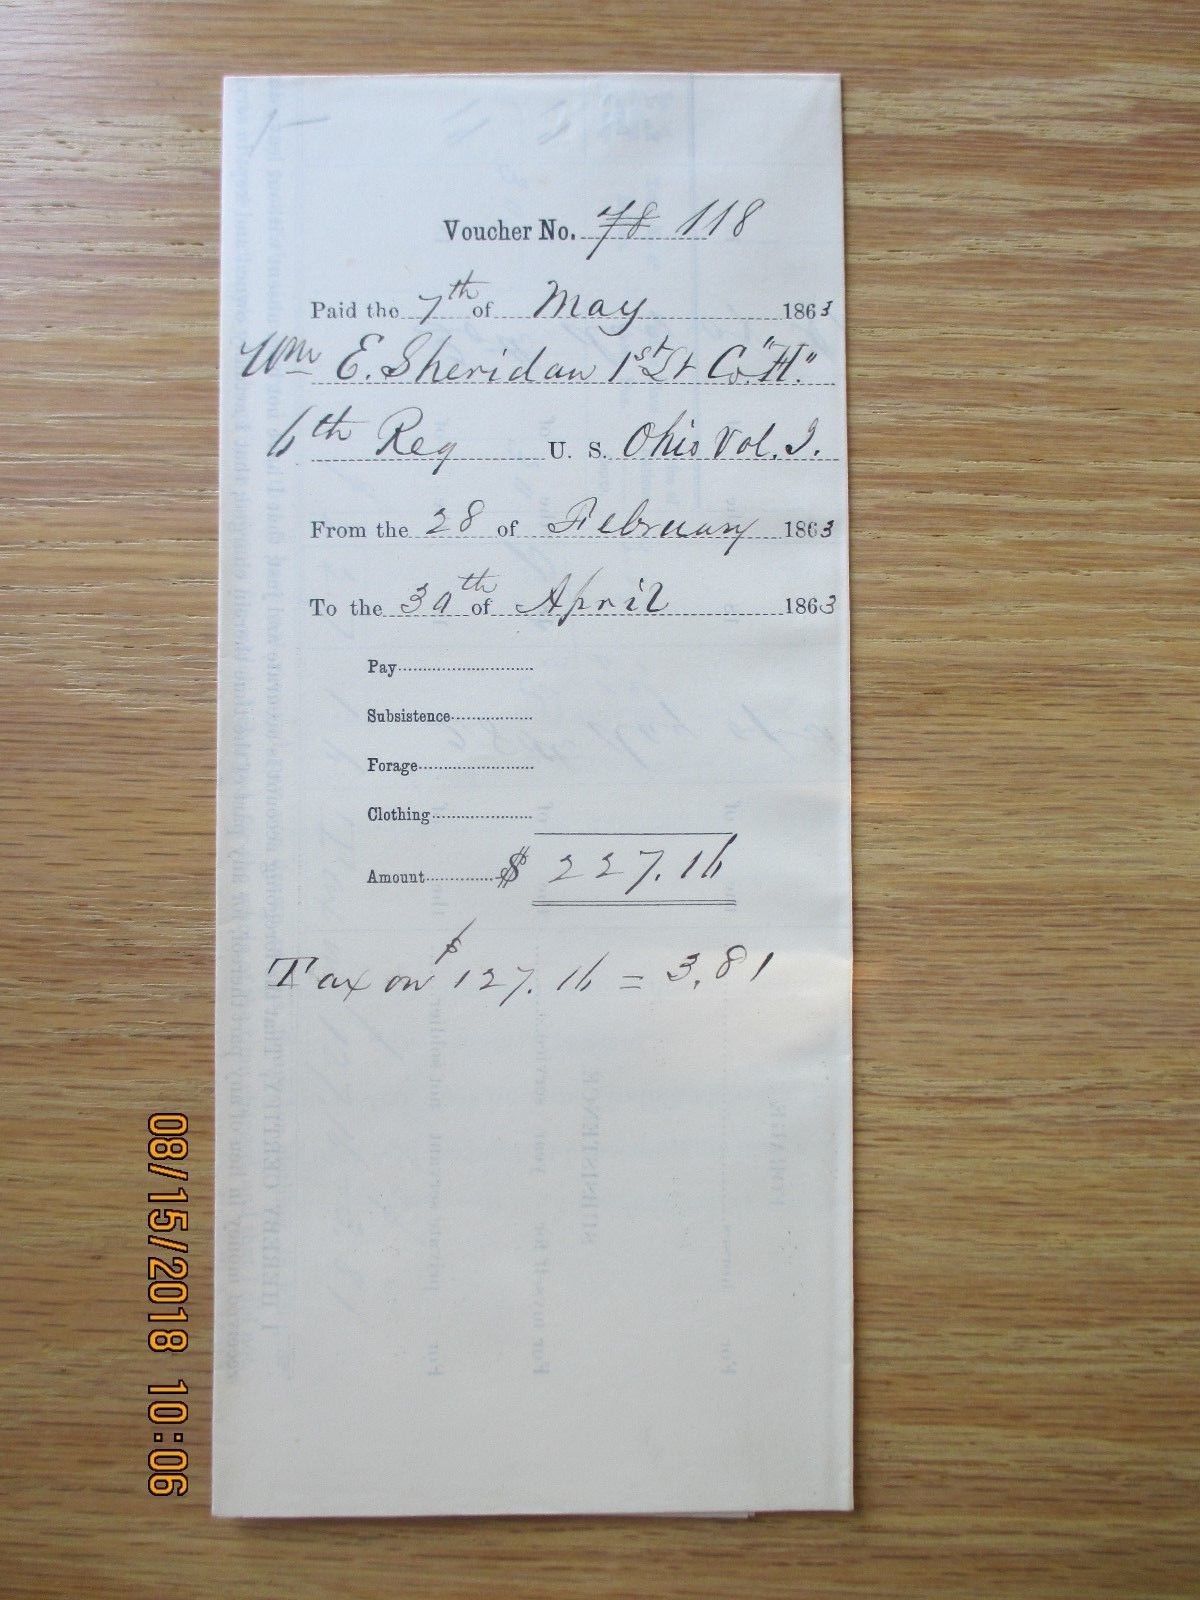 Voucher No. 78 118
Paid the 7th of May 1863
Wm E. Sheridan 1st Lt Co. "H."
6th Reg U. S. Ohio Vol. I.
From the 28 of February 1863
To the 30th of April 1863
Pay
Subsistence
Forage
Clothing
Amount $ 227.16
Tax on $127.16 = 3.81
08/15/2018 10:06